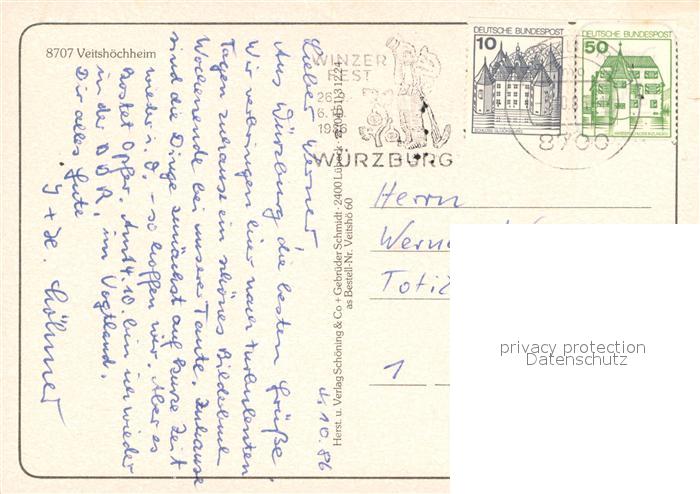 8707 Veitshöchheim
WINZER
FEST
26.9.
6.10.
1986
WÜRZBURG
DEUTSCHE BUNDESPOST
10
SCHLOSS GLÜCKSBURG
DEUTSCHE BUNDESPOST
50
8700
4.10.86
Lieber Werner!
Aus Würzburg die besten Grüße!
Wir verbringen hier nach turbulenten
Tagen zuhause ein schönes Bilderbuch
Wochenende bei unserer Tante. Zuhause
sind die Dinge zunächst auf kurze Zeit
wieder i.O. – so hoffen wir. Aber es
kostet Opfer. Am 14.10. bin ich wieder
in der DDR, im Vogtland.
Dir alles Gute
Herst. u. Verlag Schöning & Co + Gebrüder Schmidt · 2400 Lübeck
as Bestell-Nr. Veitshö 60
Herrn
1
privacy protection
Datenschutz